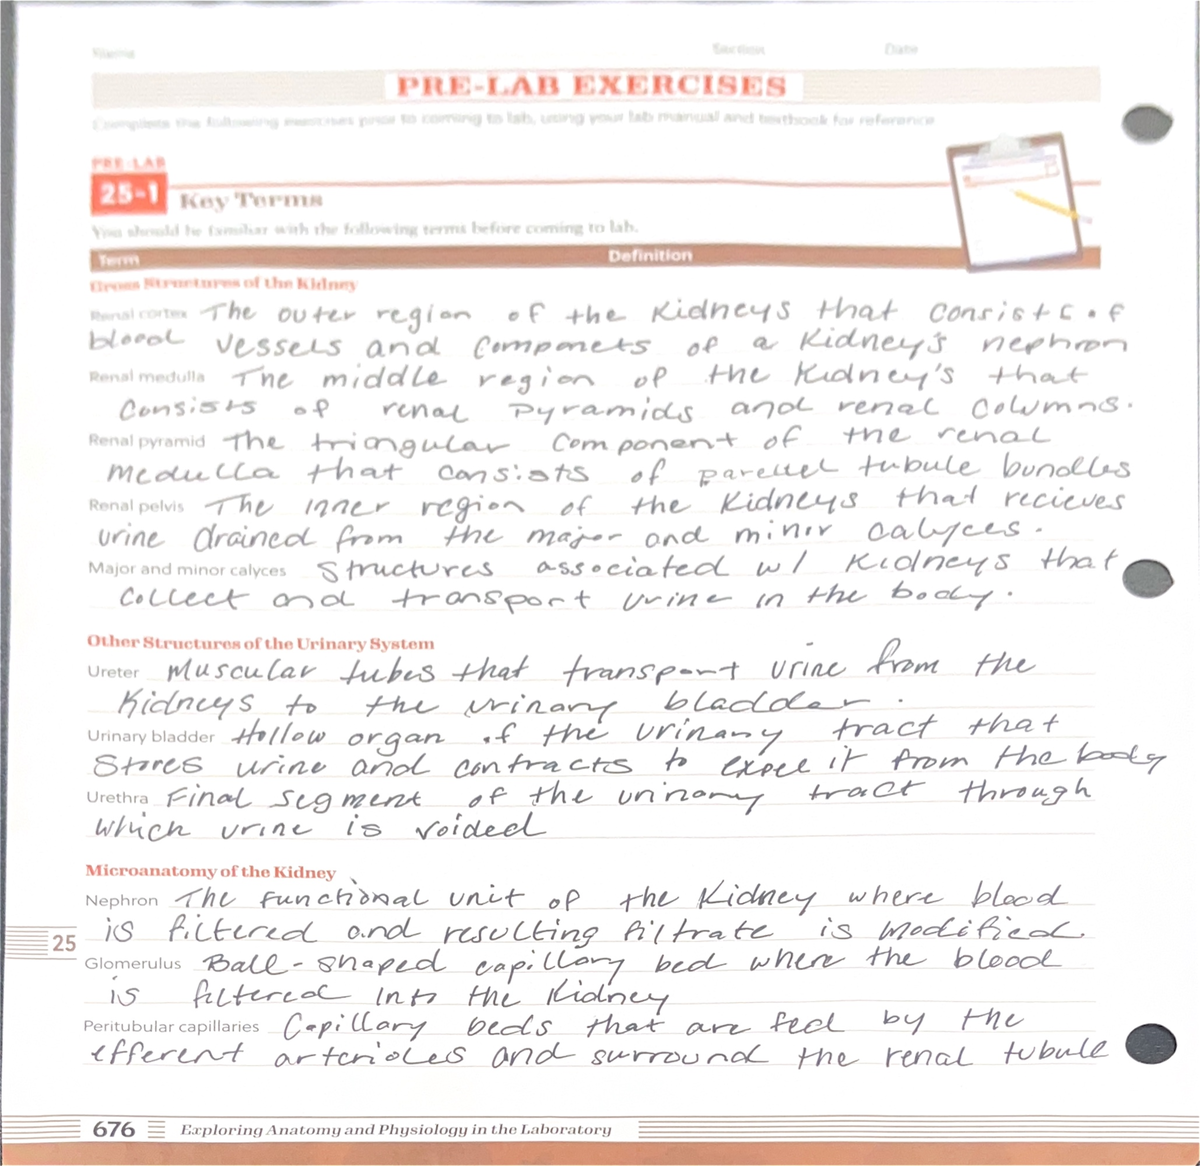 Name Section Date
PRE-LAB EXERCISES
Complete the following exercises prior to coming to lab, using your lab manual and textbook for reference
PRE-LAB
25-1 Key Terms
You should be familiar with the following terms before coming to lab.
Term Definition
Gross Structures of the Kidney
Renal cortex The outer region of the kidneys that consists of
blood vessels and componets of a kidney's nephron
Renal medulla The middle region of the kidney's that
consists of renal pyramids and renal columns.
Renal pyramid The triangular component of the renal
medulla that consists of parellel tubule bundles
Renal pelvis The inner region of the kidneys that recieves
urine drained from the major and minor calyces.
Major and minor calyces Structures associated w/ kidneys that
collect and transport urine in the body.
Other Structures of the Urinary System
Ureter Muscular tubes that transport urine from the
kidneys to the urinary bladder.
Urinary bladder Hollow organ of the urinary tract that
stores urine and contracts to expel it from the body
Urethra Final segment of the urinary tract through
which urine is voided
Microanatomy of the Kidney
Nephron The functional unit of the kidney where blood
is filtered and resulting filtrate is modified.
25
Glomerulus Ball-shaped capillary bed where the blood
is filtered into the kidney
Peritubular capillaries Capillary beds that are fed by the
efferent arterioles and surround the renal tubule
676 Exploring Anatomy and Physiology in the Laboratory